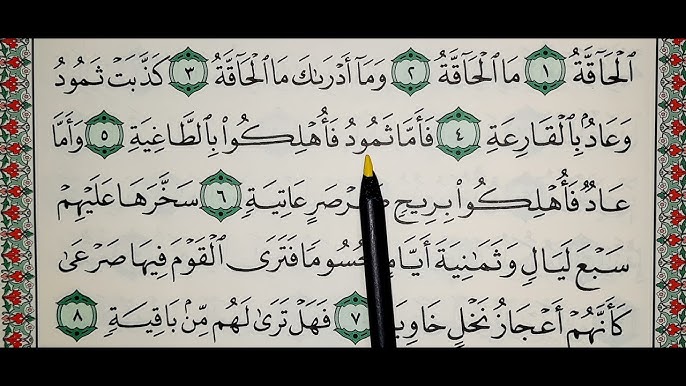 ٱلۡحَآقَّةُ ١ مَا ٱلۡحَآقَّةُ ٢ وَمَآ أَدۡرَىٰكَ مَا ٱلۡحَآقَّةُ ٣ كَذَّبَتۡ ثَمُودُ
وَعَادُۢ بِٱلۡقَارِعَةِ ٤ فَأَمَّا ثَمُودُ فَأُهۡلِكُواْ بِٱلطَّاغِيَةِ ٥ وَأَمَّا
عَادٞ فَأُهۡلِكُواْ بِرِيحٖ عَاتِيَةٖ ٦ سَخَّرَهَا عَلَيۡهِمۡ
سَبۡعَ لَيَالٖ وَثَمَٰنِيَةَ أَيَّامٍ فَتَرَى ٱلۡقَوۡمَ فِيهَا صَرۡعَىٰ
كَأَنَّهُمۡ أَعۡجَازُ نَخۡلٍ ٧ فَهَلۡ تَرَىٰ لَهُم مِّنۢ بَاقِيَةٖ ٨